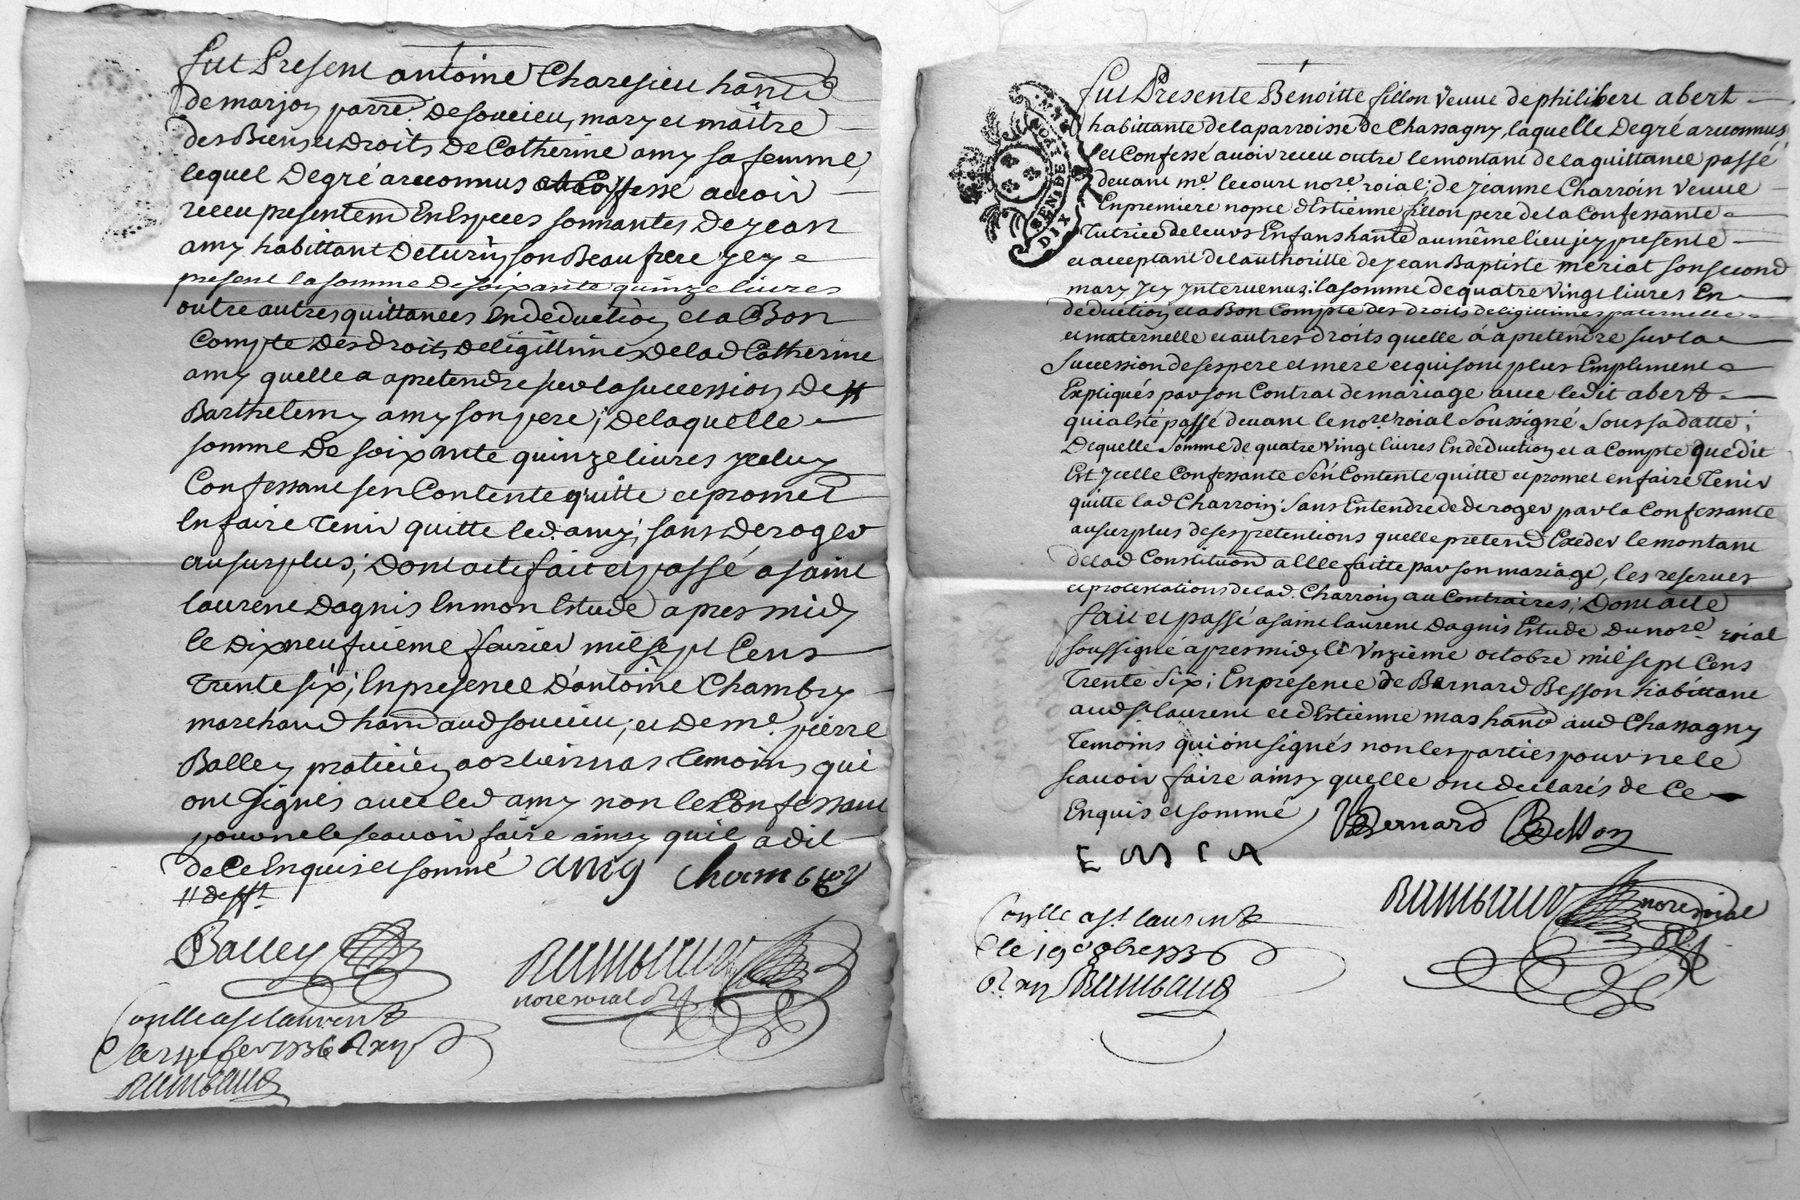 fut Present antoine Charesieu hant
de marjon parre. De soucieu, mary et maître
des Biens et Droits De Catherine amy sa femme,
lequel De gré a reconnus et Confessé auoir
receu presentemt En Especes sonnantes De jean
amy habittant De turin, son Beaufrere jcy
present la somme De soixante quinze liures
outre autres quittances En deduction et a Bon
Compte Des Droits De ligittimes De lad Catherine
amy quelle a a pretendre sur la succession De #
Barthelemy amy son pere; De laquelle
somme De soixante quinze liures jceluy
Confessant sen Contente quitte et promet
En faire tenir quitte led. amy; sans Deroger
au surplus; Dont acte fait et passé a saint
laurent Dagnis En mon Estude apres midy
le Dix neufuieme feurier mil sept Cens
trente six; En presence D'antoine Chambry
marchand hant aud soucieu; et De me. pierre
Balley praticien temoins qui
ont signés auec led amy non le Confessant
pour ne le scauoir faire ainsy quil a dit
De Ce Enquis et sommé amy Chambry
# defft.
Balley Raimbaud
nore roial
Conlle a st laurent
le 24e feur 1736 R xij s
Raimbaud
DIX
GEN DE LYON
fut Presente Benoitte fillon Veuue de philibert abert
habittante de la parroisse de Chassagny, laquelle De gré a reconnus
et Confessé auoir receu outre le montant de la quittance passé
deuant me. lecourt nore. roial; de jeanne Charroin Veuue
En premiere nopce d'Estienne fillon pere de la Confessante
Tutrice de leurs Enfans hante au même lieu jcy presente
et acceptant de l'authoritte de jean Baptiste meriat son second
mary jcy jntervenus; la somme de quatre Vingt liures En
deduction et a Bon Compte des droits de ligittimes paternelle
et maternelle et autres droits quelle à a pretendre sur la
Succession de ses pere et mere et qui sont plus Emplement
Expliqués par son Contrat de mariage auec ledit abert
qui a êsté passé deuant le nore. roial Soussigné Sous sa datte;
De quelle Somme de quatre Vingt liures En deduction et a Compte que dit
Est jcelle Confessante s'en Contente quitte et promet en faire Tenir
quitte lad Charroin; Sans Entendre de deroger par la Confessante
au surplus de ses pretentions quelle pretend Exeder le montant
de lad Constitution a Elle faitte par son mariage, les reserues
et protestations de lad Charroin au Contraires; Dont acte
fait et passé a saint laurent Dagnis Estude Du nore roial
soussigné apres midy le Vnzieme octobre mil sept Cens
Trente Six; En presence de Bernard Besson habittant
aud st laurent et d'Estienne mas hant aud Chassagny
Temoins qui ont signés non les parties pour ne le
scauoir faire ainsy quelle ont declarés de Ce
Enquis et sommé Bernard Besson
E M A
Raimbaud nore roial
Conlle a st laurent
le 19e 8bre 1736
R. xij s Raimbaud